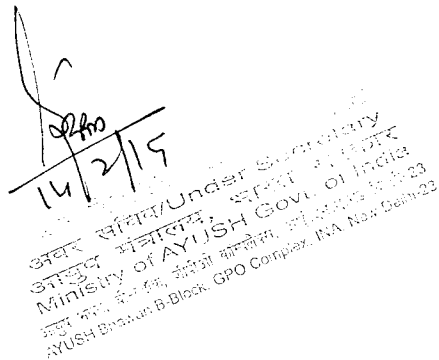 14/2/19
अवर सचिव/Under Secretary
आयुष मंत्रालय, भारत सरकार
Ministry of AYUSH Govt. of India
आयुष भवन, बी-ब्लॉक, जीपीओ कॉम्प्लेक्स, -23
AYUSH Bhawan B-Block, GPO Complex, INA, New Delhi-23